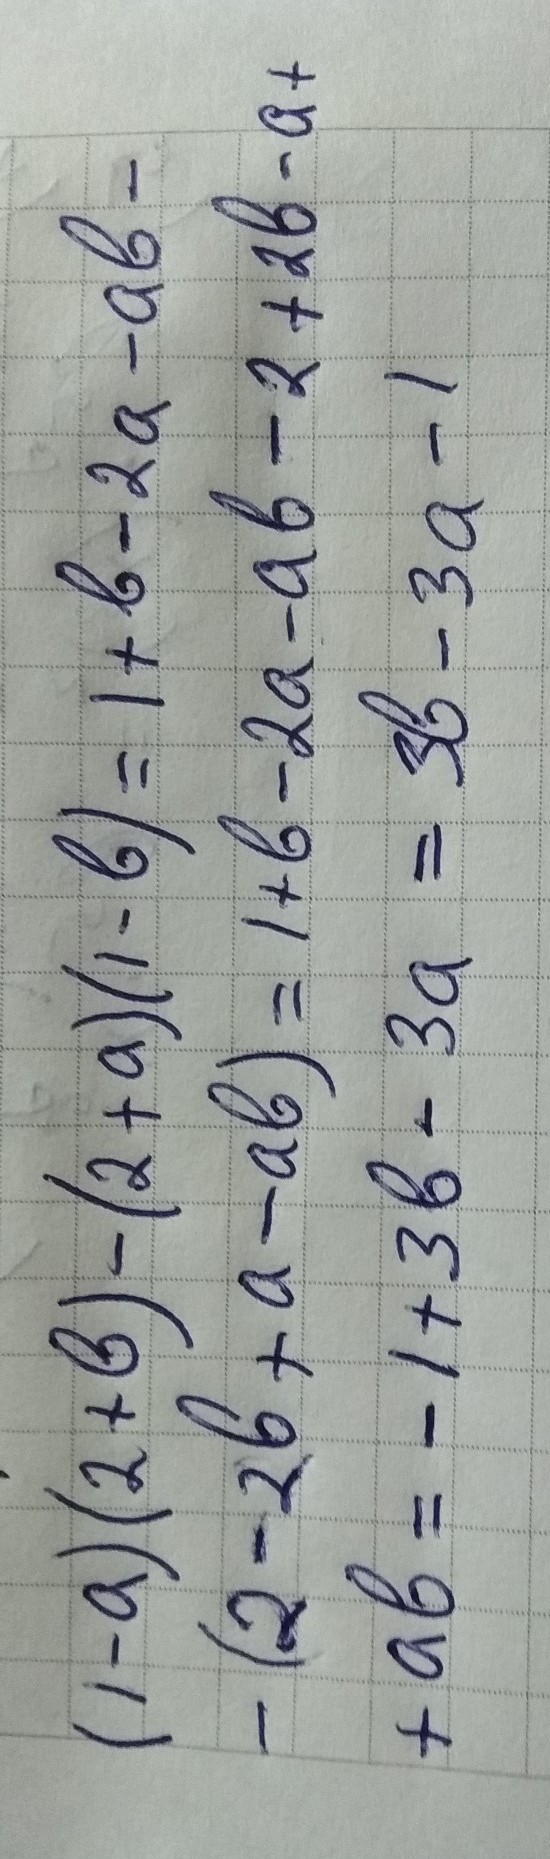 (1-a)(2+b)-(2+a)(1-b)=1+b-2a-ab-
-(2-2b+a-ab)=1+b-2a-ab-2+2b-a+
+ab=-1+3b-3a=3b-3a-1